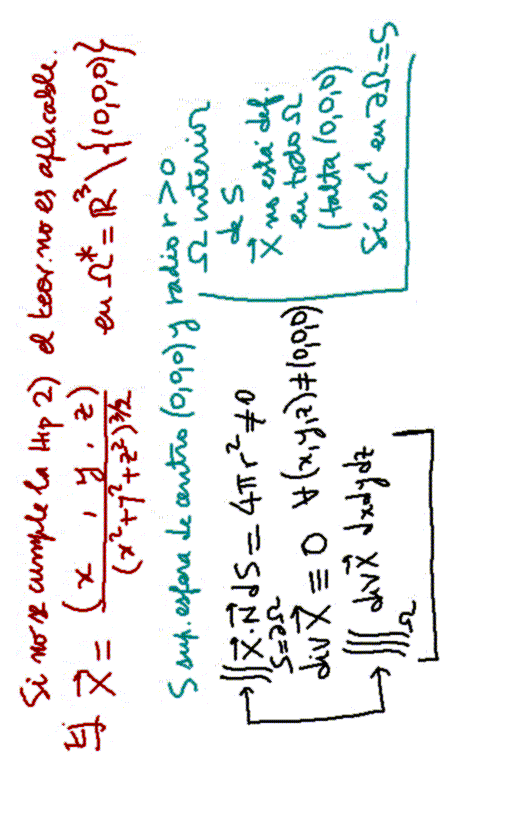 Si no se cumple la Hip 2) el teor. no es aplicable.
Ej X⃗ = (x, y, z) / (x²+y²+z²)^3/2 en Ω* = ℝ³ \ {(0,0,0)}
S sup. esfera de centro (0,0,0) y radio r>0
Ω interior
de S
∭_{S=∂Ω} X⃗·N⃗ dS = 4πr² ≠ 0
div X⃗ ≡ 0 ∀(x,y,z)≠(0,0,0)
∭_Ω div X⃗ dxdydz
X⃗ no está def.
en todo Ω
(falta (0,0,0))
Sí es C¹ en ∂Ω=S